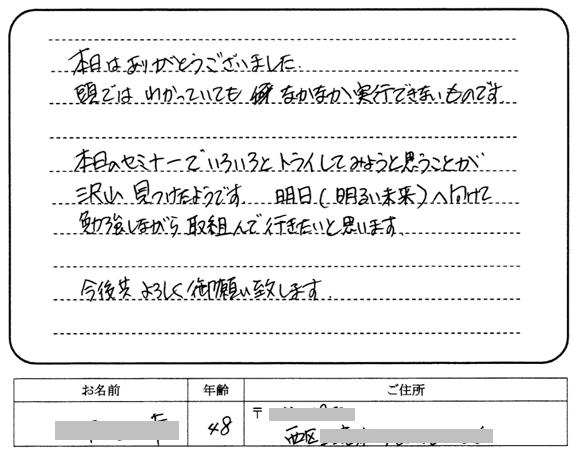 本日はありがとうございました.
頭では わかっていても なかなか実行できないものです
本日のセミナーで いろいろと トライしてみようと思うことが
沢山 見つけたようです. 明日(明るい未来)へ向けて
勉強しながら 取組んで行きたいと思います.
今後共 よろしく御願い致します.
お名前 年齢 ご住所
48 〒
西区